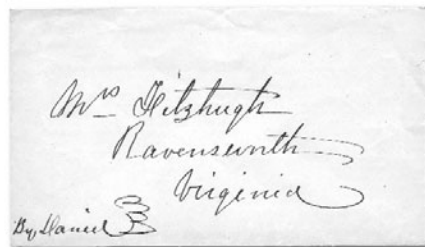 Mrs Fitzhugh
Ravensworth
Virginia
By, Daniel